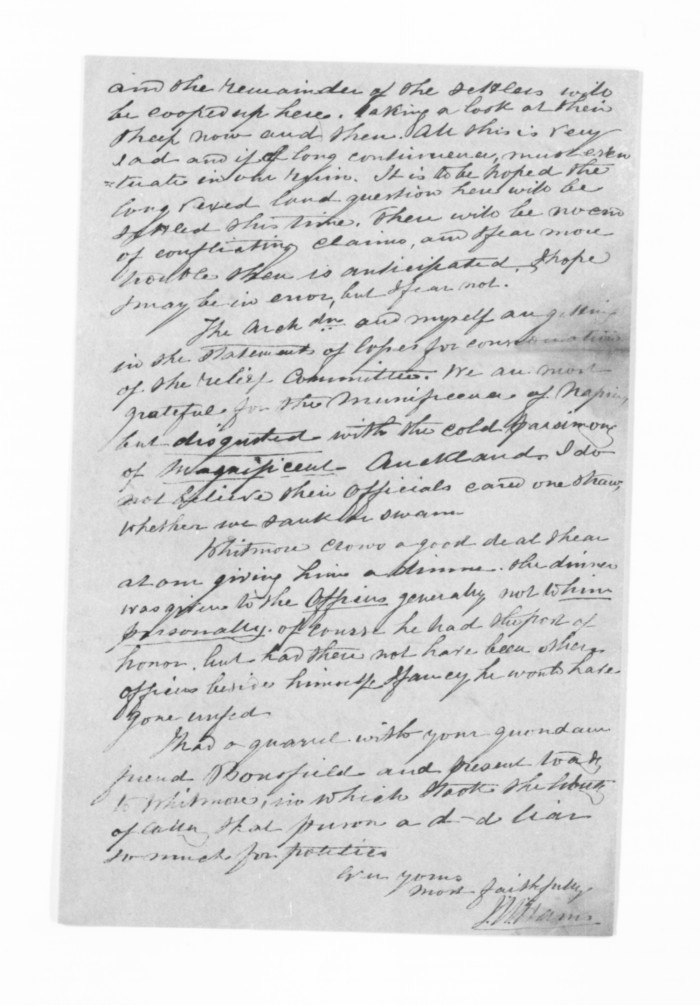 and the remainder of the settlers will
be cooped up here. Taking a look at their
sheep now and then. All this is very
sad and if of long continuence, must even
=tuate in our ruin. It is to be hoped the
long vexed land question here will be
settled this time. There will be no end
of conflicting claims, and I fear more
trouble then is anticipated. I hope
I may be in error, but I fear not.
The Arch dn and myself are getting
in the statements of losses for consideration
of the relief Committee. We are most
grateful for the munificence of Napier,
but disgusted with the cold parsimony
of Magnificent Auckland. I do
not believe their Officials cared one straw,
whether we sank or swam
Whitmore crows a good deal I hear
at our giving him a dinner. The dinner
was given to the Officers generally not to him
personally. Of course he had the post of
honor. but had there not have been other
officers beside himself I fancy he wont have
gone unfed
I had a quarrel with your quondam
friend Bousfield and present
to Whitmore, in which I took the liberty
of calling that person a d-d liar
so much for politics
Ever yours
most faithfully